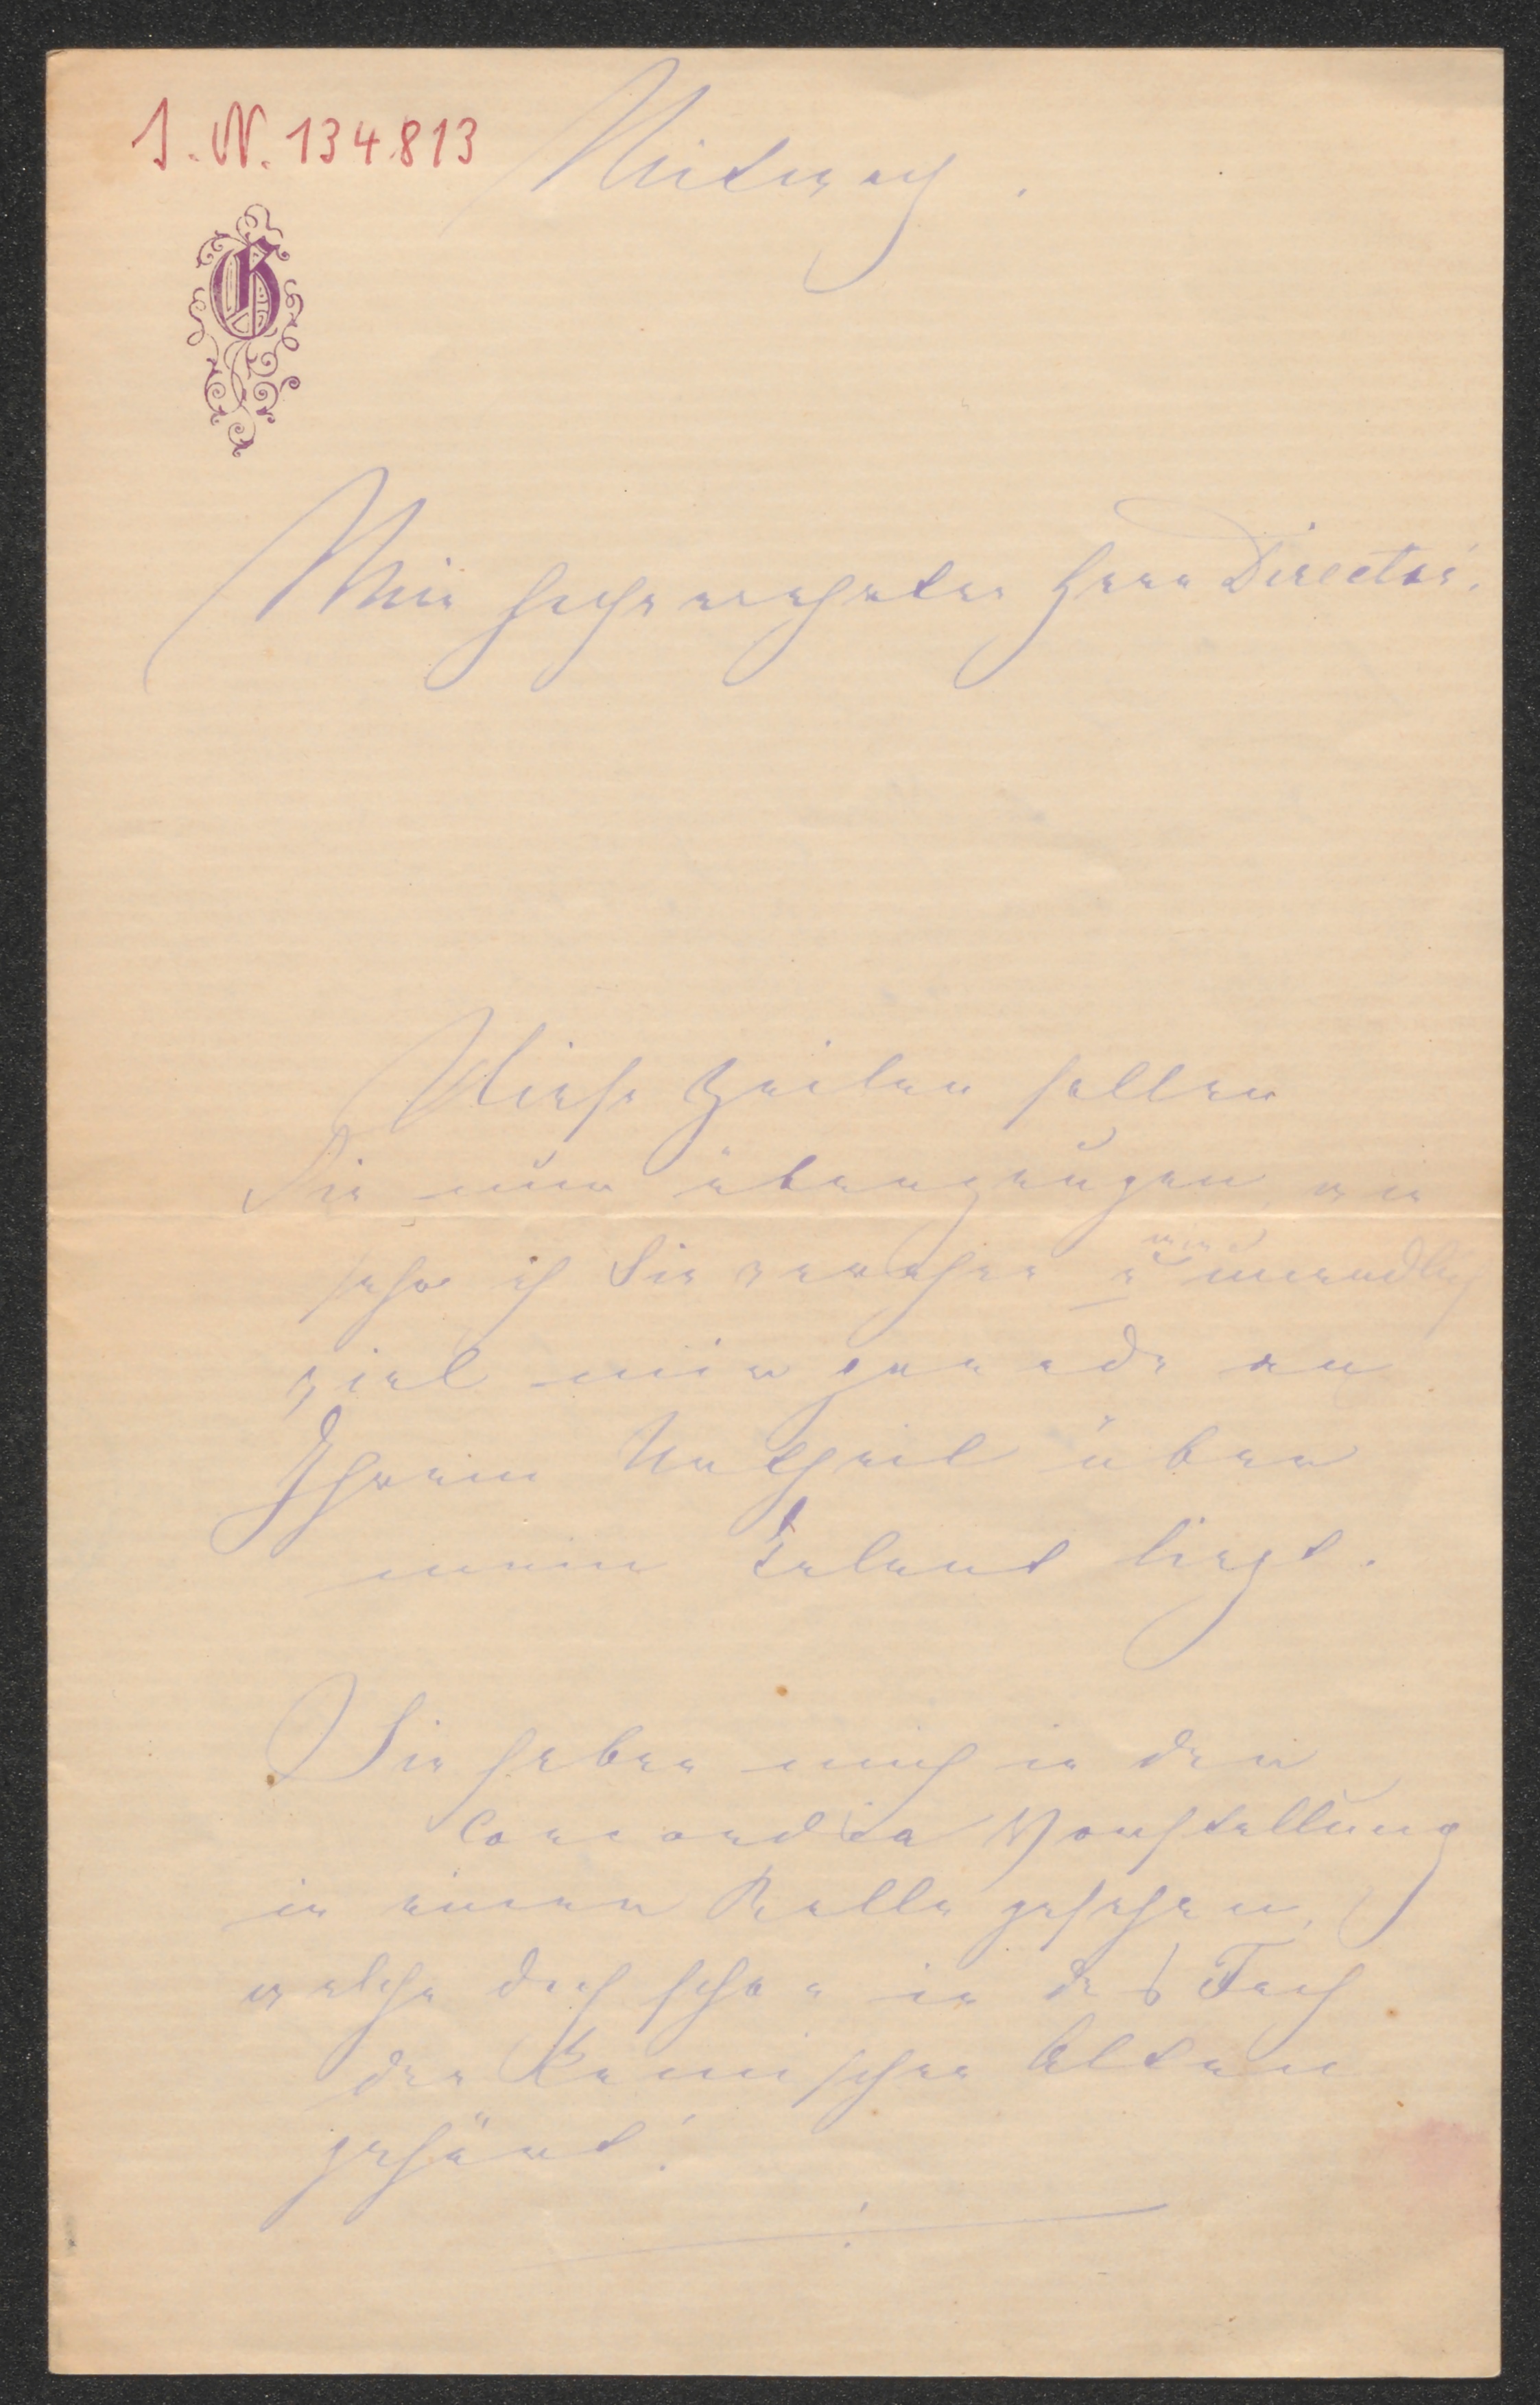 I. N. 134.813
Mitwoch.
G
Mein hochverehrter Herr Director!
Diese Zeilen sollen
Sie nur überzeugen, wie
sehr ich Sie verehre u wie unendlich
viel mir gerade an
Ihrem Urtheil über
mein Talent liegt.
Sie haben mich in der
Concordia Vorstellung
in einer Rolle gesehen,
welche doch schon in das Fach
der komischen Alten
gehört!